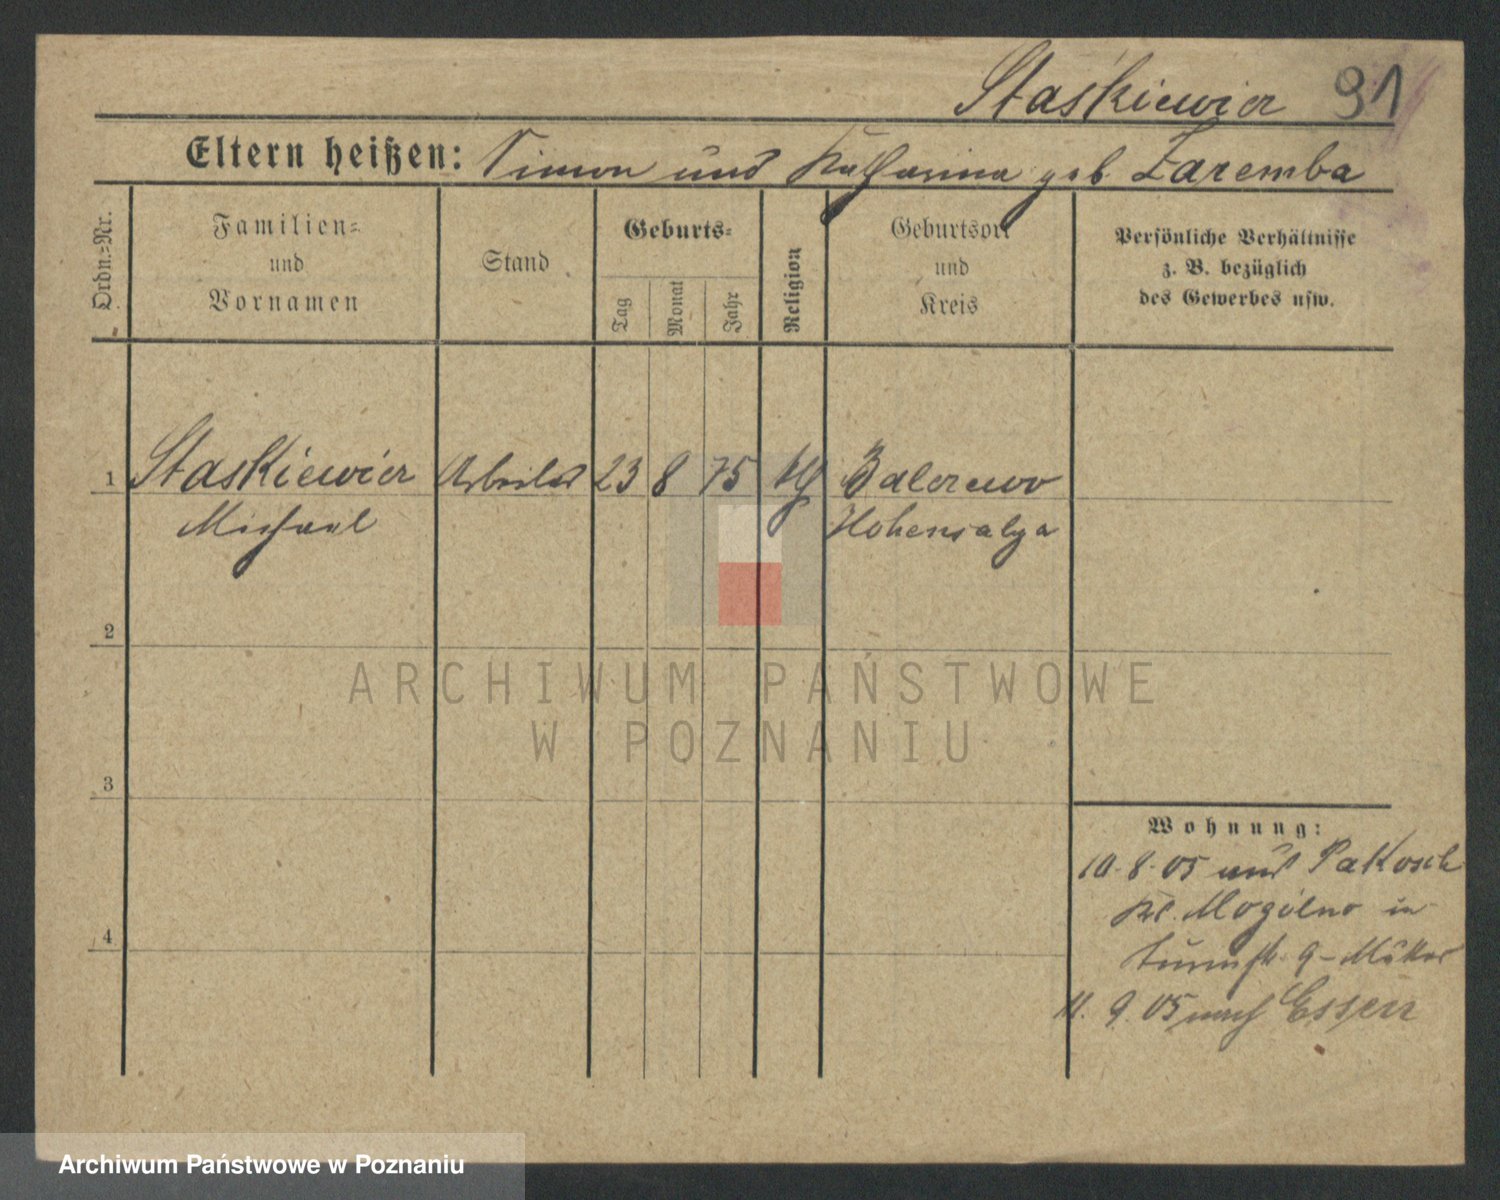 Staśkiewicz 91
Eltern heißen: Simon und Katharina geb Zaremba
Ordn.-Nr.
Familien-
und
Vornamen
Stand
Geburts-
Tag
Monat
Jahr
Religion
Geburtsort
und
Kreis
Persönliche Verhältnisse
z. B. bezüglich
des Gewerbes usw.
1 Staskiewicz Arbeiter 23 8 75 kg Balczewo
Michael Hohensalza
2
3
4
Wohnung:
10. 8. 05 aus Pakosch
Kr. Mogilno in
9
11. 9. 05 nach Essen
ARCHIWUM PAŃSTWOWE
W POZNANIU
Archiwum Państwowe w Poznaniu